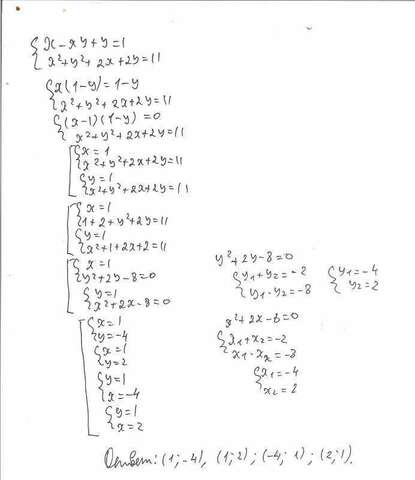 {x - xy + y = 1
{x² + y² + 2x + 2y = 11
{x(1-y) = 1-y
{x² + y² + 2x + 2y = 11
{(x-1)(1-y) = 0
{x² + y² + 2x + 2y = 11
[{x = 1
{x² + y² + 2x + 2y = 11
{y = 1
{x² + y² + 2x + 2y = 11
[{x = 1
{1 + 2 + y² + 2y = 11
{y = 1
{x² + 1 + 2x + 2 = 11
[{x = 1
{y² + 2y - 8 = 0
{y = 1
{x² + 2x - 8 = 0
[{x = 1
{y = -4
{x = 1
{y = 2
{y = 1
{x = -4
{y = 1
{x = 2
y² + 2y - 8 = 0
{y₁ + y₂ = -2
{y₁ · y₂ = -8
{y₁ = -4
{y₂ = 2
x² + 2x - 6 = 0
{x₁ + x₂ = -2
{x₁ · x₂ = -8
{x₁ = -4
{x₂ = 2
Ответ: (1; -4), (1; 2); (-4; 1); (2; 1).